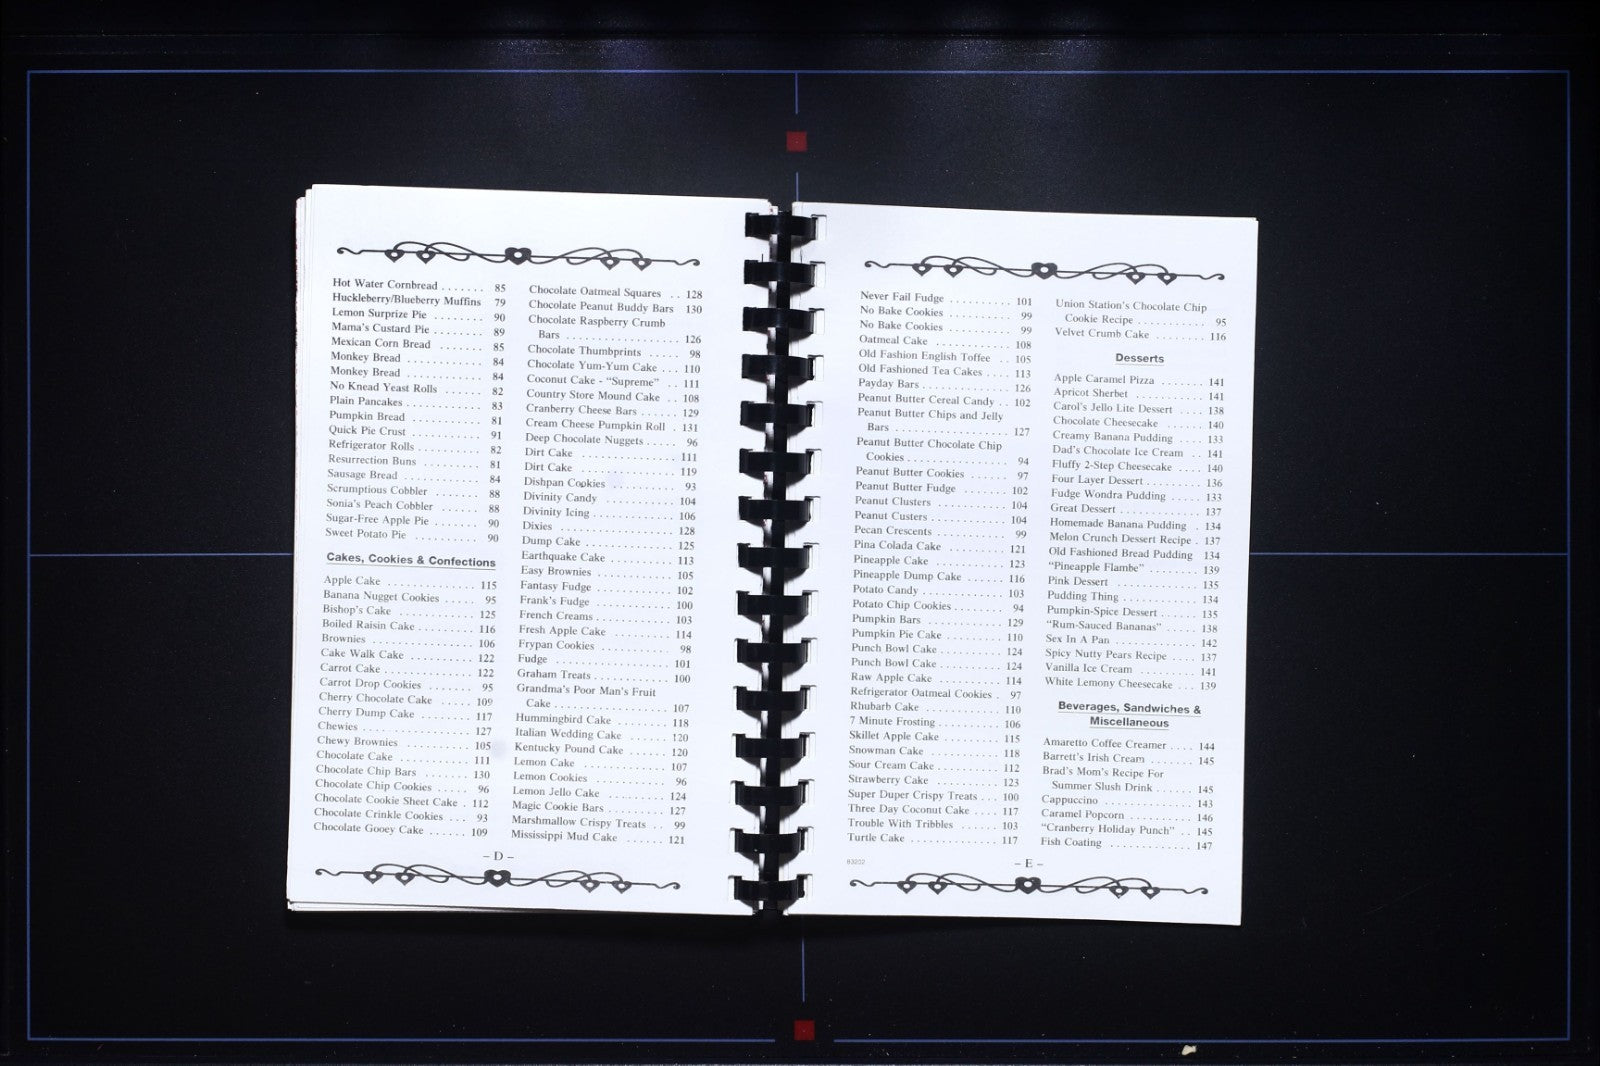 Hot Water Cornbread . . . . . . . 85
Huckleberry/Blueberry Muffins 79
Lemon Surprize Pie . . . . . . . . 90
Mama's Custard Pie . . . . . . . . 89
Mexican Corn Bread . . . . . . . 85
Monkey Bread . . . . . . . . . . . 84
Monkey Bread . . . . . . . . . . . 84
No Knead Yeast Rolls . . . . . . 82
Plain Pancakes . . . . . . . . . . . 83
Pumpkin Bread . . . . . . . . . . 81
Quick Pie Crust . . . . . . . . . . 91
Refrigerator Rolls . . . . . . . . . 82
Resurrection Buns . . . . . . . . 81
Sausage Bread . . . . . . . . . . . 84
Scrumptious Cobbler . . . . . . . 88
Sonia's Peach Cobbler . . . . . . 88
Sugar-Free Apple Pie . . . . . . . 90
Sweet Potato Pie . . . . . . . . . . 90
Cakes, Cookies & Confections
Apple Cake . . . . . . . . . . . . . 115
Banana Nugget Cookies . . . . . 95
Bishop's Cake . . . . . . . . . . . 125
Boiled Raisin Cake . . . . . . . . 116
Brownies . . . . . . . . . . . . . . 106
Cake Walk Cake . . . . . . . . . . 122
Carrot Cake . . . . . . . . . . . . . 122
Carrot Drop Cookies . . . . . . . 95
Cherry Chocolate Cake . . . . . 109
Cherry Dump Cake . . . . . . . . 117
Chewies . . . . . . . . . . . . . . . 127
Chewy Brownies . . . . . . . . . . 105
Chocolate Cake . . . . . . . . . . . 111
Chocolate Chip Bars . . . . . . . 130
Chocolate Chip Cookies . . . . . 96
Chocolate Cookie Sheet Cake . 112
Chocolate Crinkle Cookies . . . 93
Chocolate Gooey Cake . . . . . . 109
Chocolate Oatmeal Squares . . 128
Chocolate Peanut Buddy Bars 130
Chocolate Raspberry Crumb
Bars . . . . . . . . . . . . . . . . 126
Chocolate Thumbprints . . . . . 98
Chocolate Yum-Yum Cake . . . 110
Coconut Cake - “Supreme” . . 111
Country Store Mound Cake . . 108
Cranberry Cheese Bars . . . . . . 129
Cream Cheese Pumpkin Roll . 131
Deep Chocolate Nuggets . . . . . 96
Dirt Cake . . . . . . . . . . . . . . 111
Dirt Cake . . . . . . . . . . . . . . 119
Dishpan Cookies . . . . . . . . . . 93
Divinity Candy . . . . . . . . . . . 104
Divinity Icing . . . . . . . . . . . . 106
Dixies . . . . . . . . . . . . . . . . 128
Dump Cake . . . . . . . . . . . . . 125
Earthquake Cake . . . . . . . . . . 113
Easy Brownies . . . . . . . . . . . 105
Fantasy Fudge . . . . . . . . . . . . 102
Frank's Fudge . . . . . . . . . . . . 100
French Creams . . . . . . . . . . . . 103
Fresh Apple Cake . . . . . . . . . 114
Frypan Cookies . . . . . . . . . . . 98
Fudge . . . . . . . . . . . . . . . . . 101
Graham Treats . . . . . . . . . . . . 100
Grandma's Poor Man's Fruit
Cake . . . . . . . . . . . . . . . . . 107
Hummingbird Cake . . . . . . . . 118
Italian Wedding Cake . . . . . . 120
Kentucky Pound Cake . . . . . . 120
Lemon Cake . . . . . . . . . . . . . 107
Lemon Cookies . . . . . . . . . . . 96
Lemon Jello Cake . . . . . . . . . 124
Magic Cookie Bars . . . . . . . . . 127
Marshmallow Crispy Treats . . 99
Mississippi Mud Cake . . . . . . 121
– D –
Never Fail Fudge . . . . . . . . . . 101
No Bake Cookies . . . . . . . . . . 99
No Bake Cookies . . . . . . . . . . 99
Oatmeal Cake . . . . . . . . . . . . 108
Old Fashion English Toffee . . 105
Old Fashioned Tea Cakes . . . . 113
Payday Bars . . . . . . . . . . . . . 126
Peanut Butter Cereal Candy . . 102
Peanut Butter Chips and Jelly
Bars . . . . . . . . . . . . . . . . . 127
Peanut Butter Chocolate Chip
Cookies . . . . . . . . . . . . . . . 94
Peanut Butter Cookies . . . . . . 97
Peanut Butter Fudge . . . . . . . 102
Peanut Clusters . . . . . . . . . . . 104
Peanut Custers . . . . . . . . . . . . 104
Pecan Crescents . . . . . . . . . . . 99
Pina Colada Cake . . . . . . . . . 121
Pineapple Cake . . . . . . . . . . . 123
Pineapple Dump Cake . . . . . . 116
Potato Candy . . . . . . . . . . . . . 103
Potato Chip Cookies . . . . . . . . 94
Pumpkin Bars . . . . . . . . . . . . 129
Pumpkin Pie Cake . . . . . . . . . 110
Punch Bowl Cake . . . . . . . . . . 124
Punch Bowl Cake . . . . . . . . . . 124
Raw Apple Cake . . . . . . . . . . 114
Refrigerator Oatmeal Cookies . 97
Rhubarb Cake . . . . . . . . . . . . 110
7 Minute Frosting . . . . . . . . . . 106
Skillet Apple Cake . . . . . . . . . 115
Snowman Cake . . . . . . . . . . . 118
Sour Cream Cake . . . . . . . . . . 112
Strawberry Cake . . . . . . . . . . 123
Super Duper Crispy Treats . . . 100
Three Day Coconut Cake . . . . 117
Trouble With Tribbles . . . . . . 103
Turtle Cake . . . . . . . . . . . . . 117
Union Station's Chocolate Chip
Cookie Recipe . . . . . . . . . . . 95
Velvet Crumb Cake . . . . . . . . 116
Desserts
Apple Caramel Pizza . . . . . . . 141
Apricot Sherbet . . . . . . . . . . . 141
Carol's Jello Lite Dessert . . . . 138
Chocolate Cheesecake . . . . . . 140
Creamy Banana Pudding . . . . 133
Dad's Chocolate Ice Cream . . 141
Fluffy 2-Step Cheesecake . . . . 140
Four Layer Dessert . . . . . . . . . 136
Fudge Wondra Pudding . . . . . 133
Great Dessert . . . . . . . . . . . . . 137
Homemade Banana Pudding . 134
Melon Crunch Dessert Recipe . 137
Old Fashioned Bread Pudding 134
“Pineapple Flambe” . . . . . . . . 139
Pink Dessert . . . . . . . . . . . . . 135
Pudding Thing . . . . . . . . . . . . 134
Pumpkin-Spice Dessert . . . . . . 135
“Rum-Sauced Bananas” . . . . . 138
Sex In A Pan . . . . . . . . . . . . . 142
Spicy Nutty Pears Recipe . . . . 137
Vanilla Ice Cream . . . . . . . . . 141
White Lemony Cheesecake . . . 139
Beverages, Sandwiches &
Miscellaneous
Amaretto Coffee Creamer . . . . 144
Barrett's Irish Cream . . . . . . . 145
Brad's Mom's Recipe For
Summer Slush Drink . . . . . . 145
Cappuccino . . . . . . . . . . . . . . 143
Caramel Popcorn . . . . . . . . . . 146
“Cranberry Holiday Punch” . . 145
Fish Coating . . . . . . . . . . . . . 147
83202
– E –